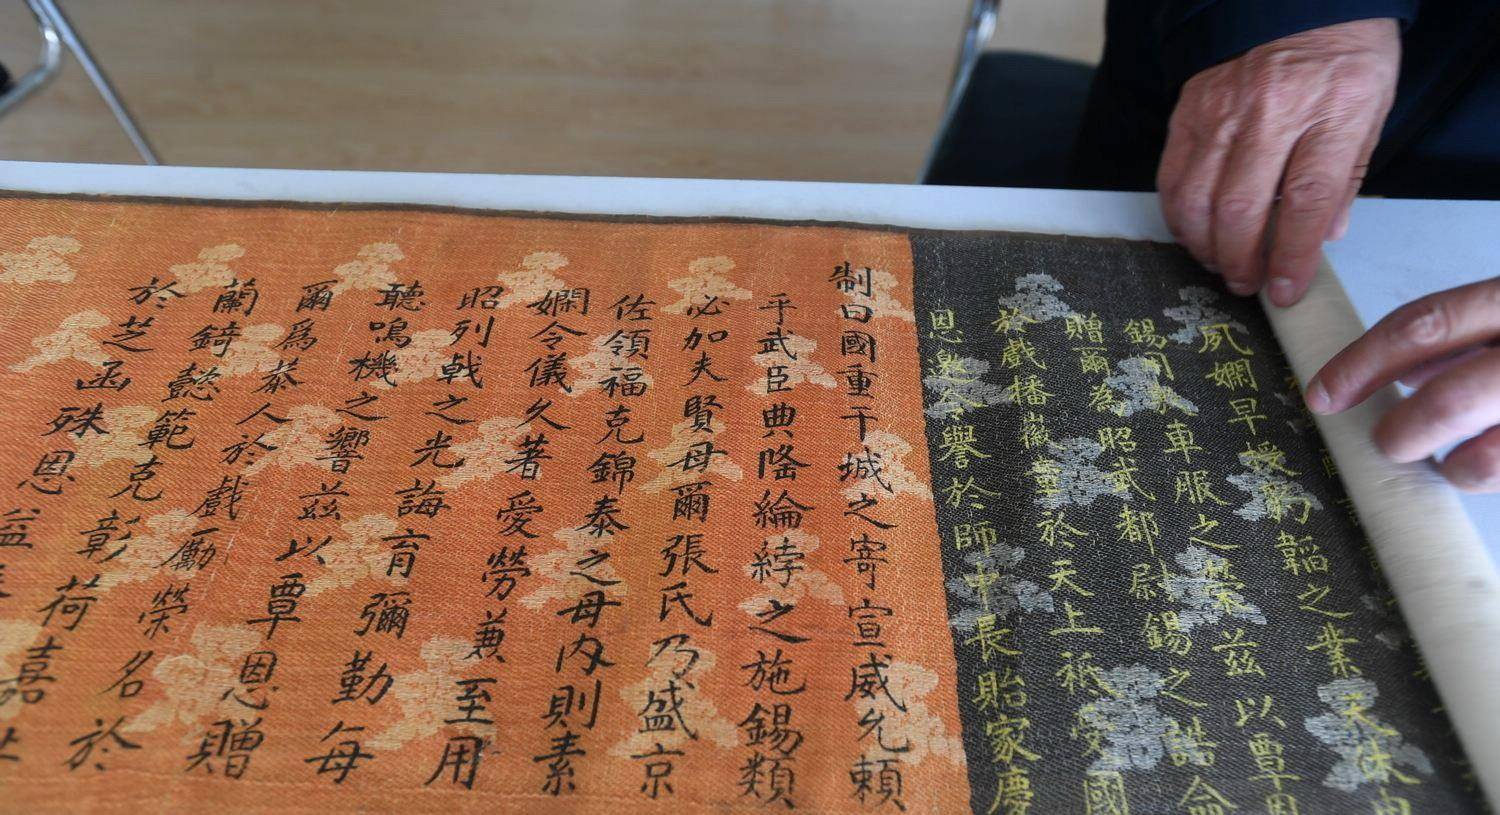 夙嫻早授豹韜之業天休內
錫車服之榮茲以覃恩
贈爾為昭武都尉錫之誥命
於戲播徽董於天上祇受國
恩邀令譽於師中長貽家慶
制曰國重干城之寄宣威允賴
乎武臣典隆綸綍之施錫類
必加夫賢母爾張氏乃盛京
佐領福克錦泰之母內則素
嫻令儀久著愛勞兼至用
昭列戟之光誨育彌勤每
聽鳴機之響茲以覃恩贈
爾為恭人於戲勵榮名於
蘭錡懿範克彰荷嘉
於芝函殊恩益